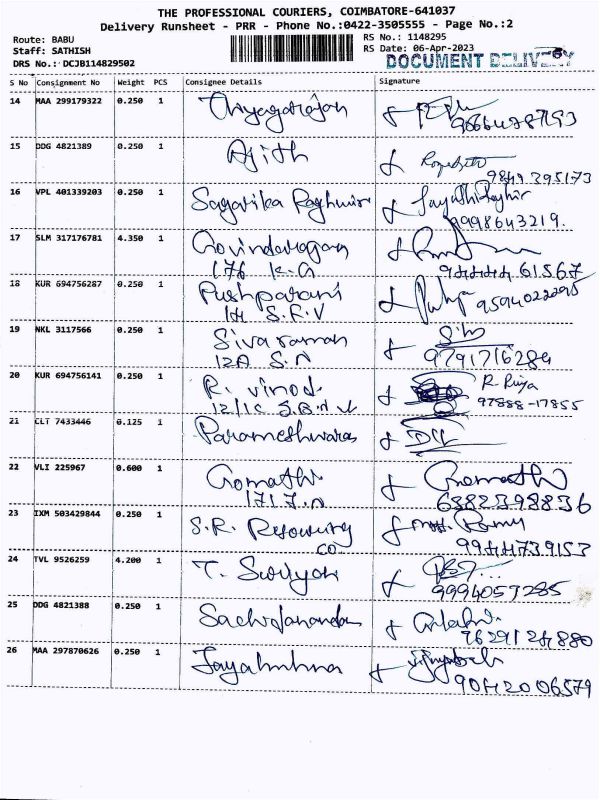 THE PROFESSIONAL COURIERS, COIMBATORE-641037
Delivery Runsheet - PRR - Phone No.:0422-3505555 - Page No.:2
Route: BABU
Staff: SATHISH
DRS No.: DCJB114829502
RS No.: 1148295
RS Date: 06-Apr-2023
DOCUMENT DELIVERY
S No Consignment No Weight PCS Consignee Details Signature
14 MAA 299179322 0.250 1 Thyagarajan
15 DDG 4821389 0.250 1 Ajith
9849395173
16 VPL 401339203 0.250 1 Sagarika Raghuvir
9998643219.
17 SLM 317176781 4.350 1 Govindarajan
176 K.G 944444 61567
18 KUR 694756287 0.250 1 Pushparani
S.F.V 9594022295
19 NKL 3117566 0.250 1 Sivaraman
12A S.N 9791716284
20 KUR 694756141 0.250 1 R. Vinod. R. Priya
97888-17855
21 CLT 7433446 0.125 1 Parameshwaran
22 VLI 225967 0.600 1 Gomathi Gomathi
1717.A 6382398836
23 IXM 503429844 0.250 1 S.R. Resourcing
CO 9944739153
24 TVL 9526259 4.200 1 T. Suriyan
9994057285
25 DDG 4821388 0.250 1 Sachidanandan
7629124880
26 MAA 297870626 0.250 1 Jayakrishna
9042006579